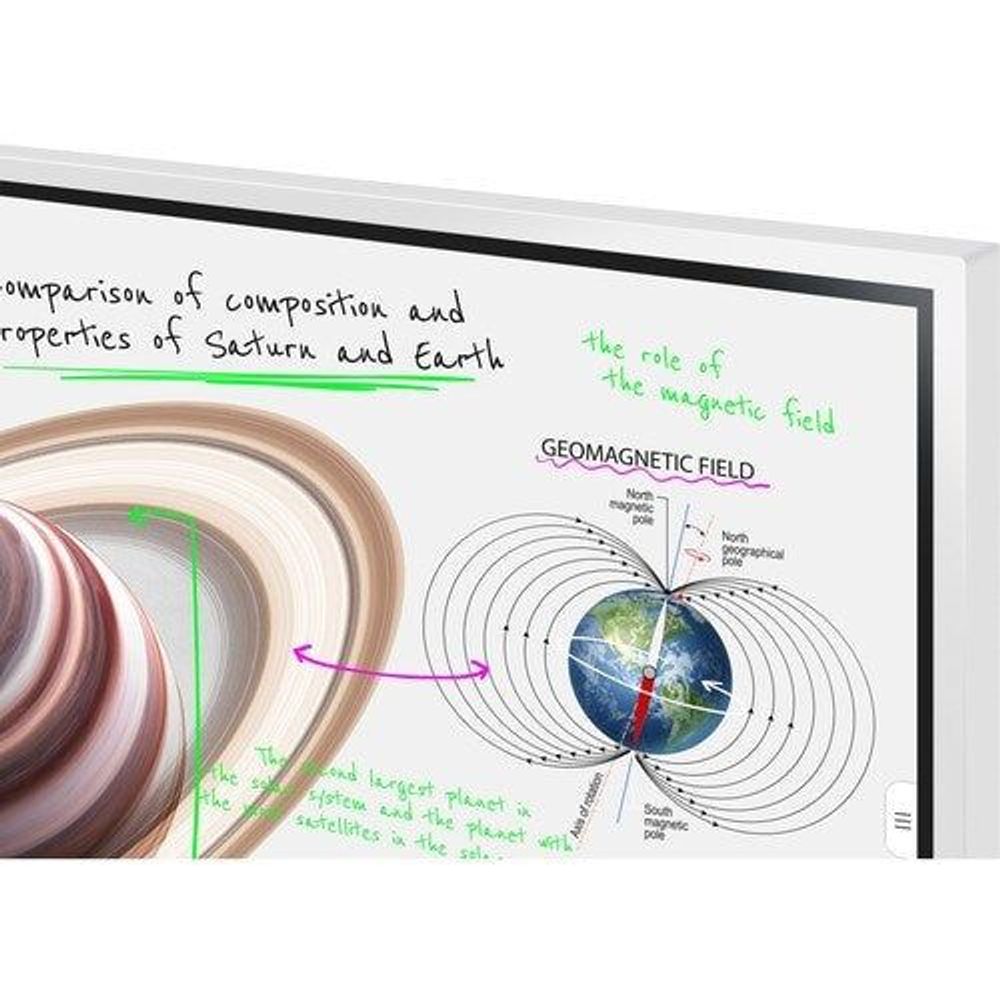 omparison of composition and
roperties of Saturn and Earth
the role of
the magnetic field
GEOMAGNETIC FIELD
North
magnetic
pole
North
geographical
pole
largest planet in
the system and the planet with
the satellites in the
Axis of rotation
South
magnetic
pole